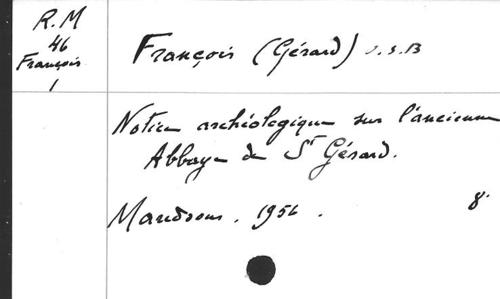 R.M
46
François
1
François (Gérard) O.S.B
Notice archéologique sur l'ancienne
Abbaye de St Gérard.
Maredsous. 1956. 8°